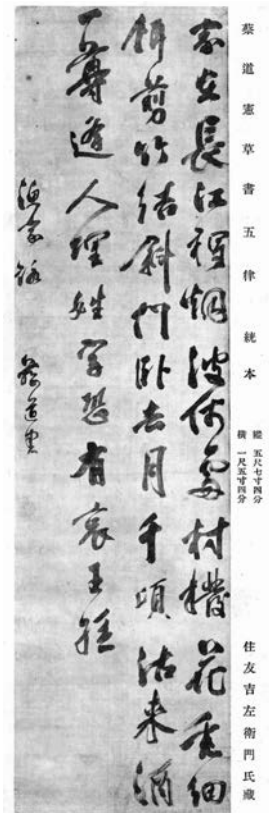 蔡道憲草書五律 絖本
縱 五尺七寸四分
橫 一尺五寸四分
住友吉左衛門氏藏
家在長江裡烟波何處村花垂細
餌剪竹結斜門臥去月千頃沽來酒
一尊逢人埋姓字恐有哀王孫
漁家詠 蔡道憲